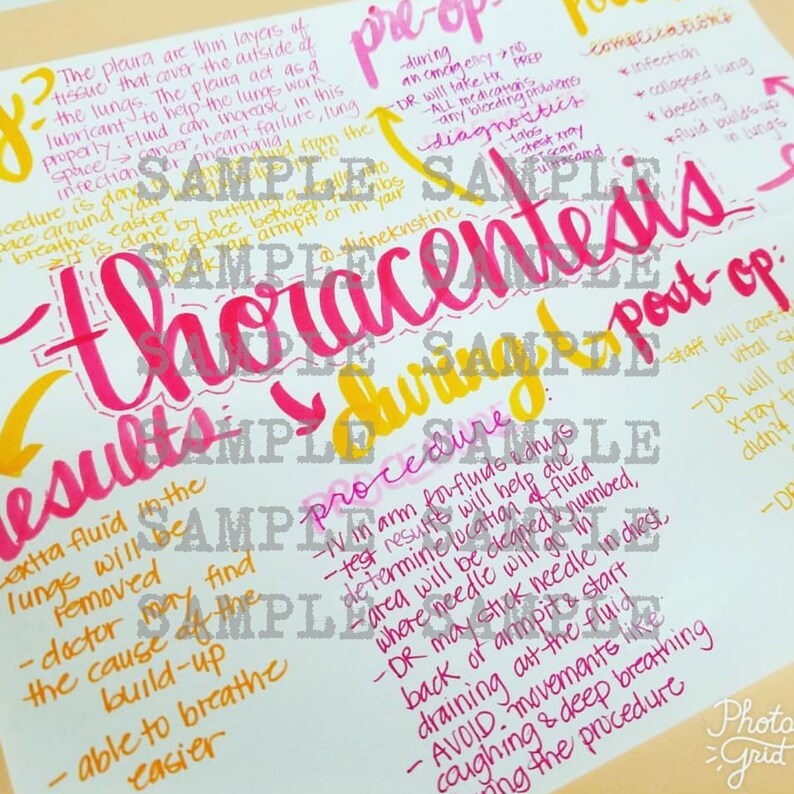 y?
The pleura are thin layers of
tissue that cover the outside of
the lungs. The pleura act as a
lubricant to help the lungs work
properly. Fluid can increase in this
space → cancer, heart failure, lung
infection or pneumonia
procedure is done to remove fluid from the
space around your lungs & helps
breathe easier
→ it is done by putting a needle into
the space between the ribs
back your armpit or in your
pre-op:
- during
an emergency → NO
PREP
- DR will take HX
- ALL medications
- any bleeding problems
diagnostics
- labs
- chest xray
scan
ultrasound
complications
* infection
* collapsed lung
* bleeding
* fluid builds-up
in lungs
thoracentesis
results:
- extra fluid in the
lungs will be
removed
- doctor may find
the cause of the
build-up
- able to breathe
easier
during
PROCEDURE
procedure:
- IV in arm for fluids & drugs
- test results will help
determine location of fluid
- area will be cleaned & numbed,
where needle will go in
- DR may stick needle in chest,
back or armpit & start
draining out the fluid
- AVOID movements like
coughing & deep breathing
the procedure
post-op:
staff will care
vital
- DR will
x-ray to
didn't
- DR
SAMPLE SAMPLE
SAMPLE SAMPLE
SAMPLE SAMPLE
SAMPLE SAMPLE
SAMPLE SAMPLE
SAMPLE SAMPLE
Photo
Grid